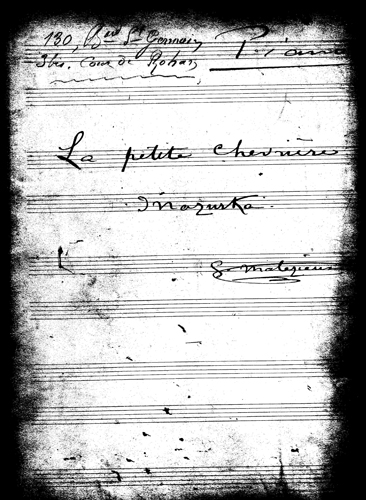 130, Bard St Germain
3bis, Cour de Rohan
Piano
La petite chevrière
Mazurka
G. Malezieux